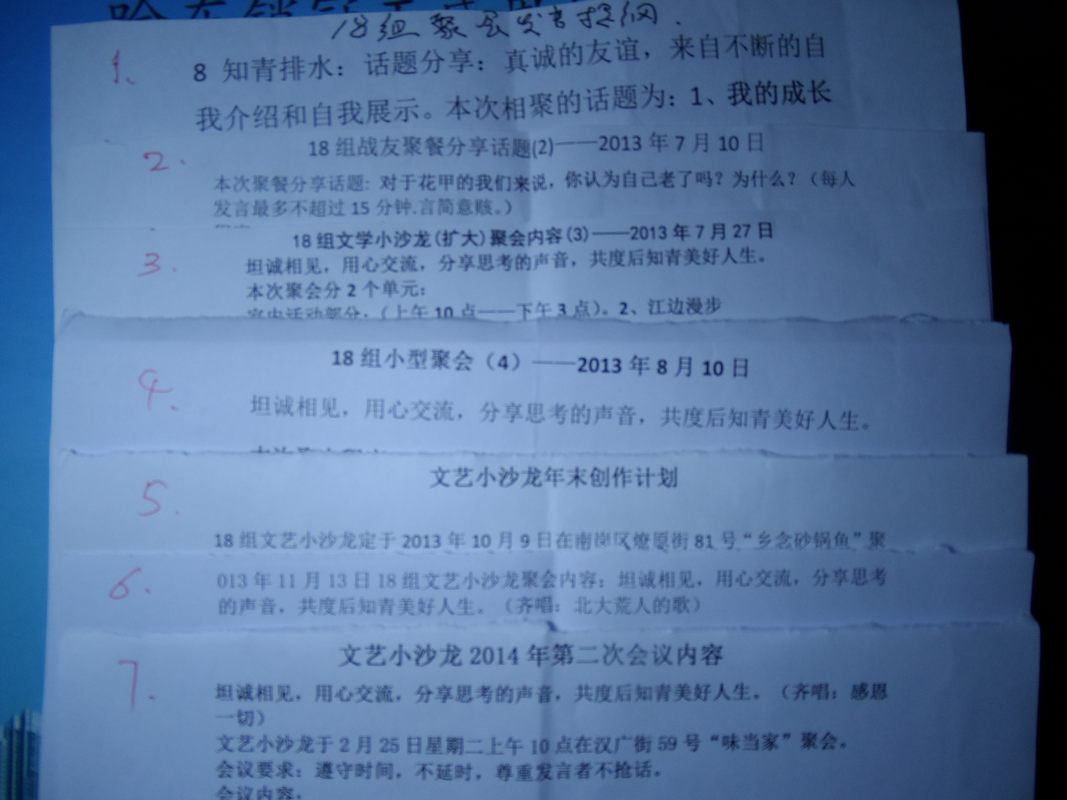 18组聚会发言提纲.
1.
8 知青排水：话题分享：真诚的友谊，来自不断的自
我介绍和自我展示。本次相聚的话题为：1、我的成长
2.
18组战友聚餐分享话题(2)——2013年7月10日
本次聚餐分享话题: 对于花甲的我们来说，你认为自己老了吗？为什么？（每人
发言最多不超过15分钟.言简意赅。）
3.
18组文学小沙龙(扩大)聚会内容(3)——2013年7月27日
坦诚相见，用心交流，分享思考的声音，共度后知青美好人生。
本次聚会分2个单元：
室内活动部分：（上午10点——下午3点）。2、江边漫步
4.
18组小型聚会（4）——2013年8月10日
坦诚相见，用心交流，分享思考的声音，共度后知青美好人生。
5.
文艺小沙龙年末创作计划
18组文艺小沙龙定于2013年10月9日在南岗区燎原街81号“乡念砂锅鱼”聚
6.
013年11月13日18组文艺小沙龙聚会内容：坦诚相见，用心交流，分享思考
的声音，共度后知青美好人生。（齐唱：北大荒人的歌）
7.
文艺小沙龙2014年第二次会议内容
坦诚相见，用心交流，分享思考的声音，共度后知青美好人生。（齐唱：感恩
一切）
文艺小沙龙于2月25日星期二上午10点在汉广街59号“味当家”聚会。
会议要求：遵守时间，不延时，尊重发言者不抢话。
会议内容：